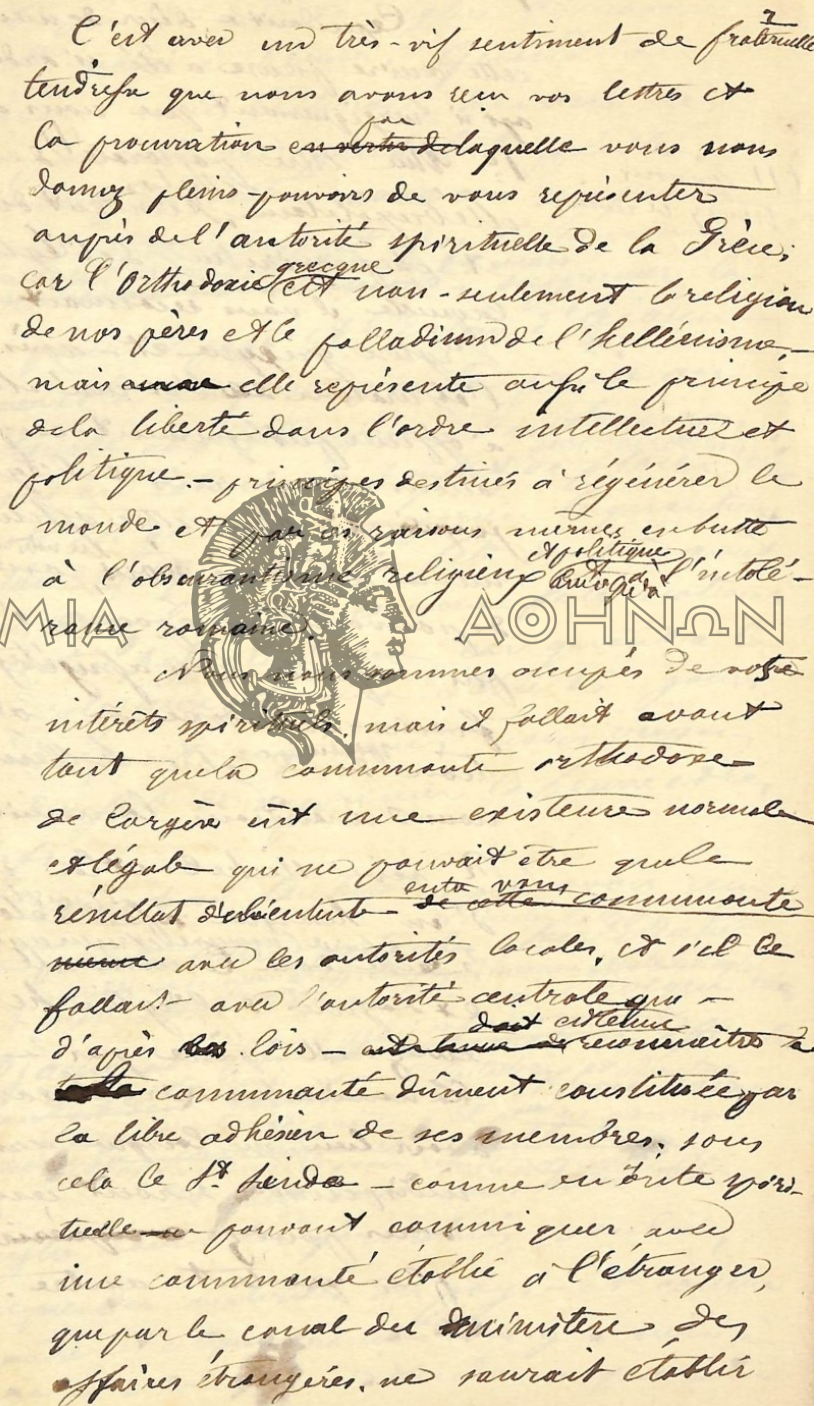 C'est avec un très-vif sentiment de fraternelle
tendresse que nous avons reçu vos lettres et
la procuration en vertu de par laquelle vous nous
donnez pleins-pouvoirs de vous représenter
auprès de l'autorité spirituelle de la Grèce;
car l'Orthodoxie grecque est non-seulement la religion
de nos pères et le palladium de l'hellénisme,-
mais elle représente aussi le principe
de la liberté dans l'ordre intellectuel et
politique.- principes destinés à régénérer le
monde et par ces raisons mêmes en butte
à l'obscurantisme religieux et politique à l'intolé-
rance romaine.
ΜΙΑ ΑΘΗΝΩΝ
Nous nous sommes occupés de votre
intérêts spirituels. mais il fallait avant
tout que la communauté orthodoxe
de Cargèse eût une existence normale
et légale qui ne pouvait être que le
résultat d'une entente entre vous de cette communauté
même avec les autorités locales, et s'il le
fallait - avec l'autorité centrale qui -
d'après les lois - est tenue de doit reconnaître la
communauté dûment constituée par
la libre adhésion de ses membres. sans
cela le St. Sinode - comme autorité spiri-
tuelle - ne pouvant communiquer avec
une communauté établie à l'étranger,
que par le canal du ministère des
affaires étrangères. ne saurait établir